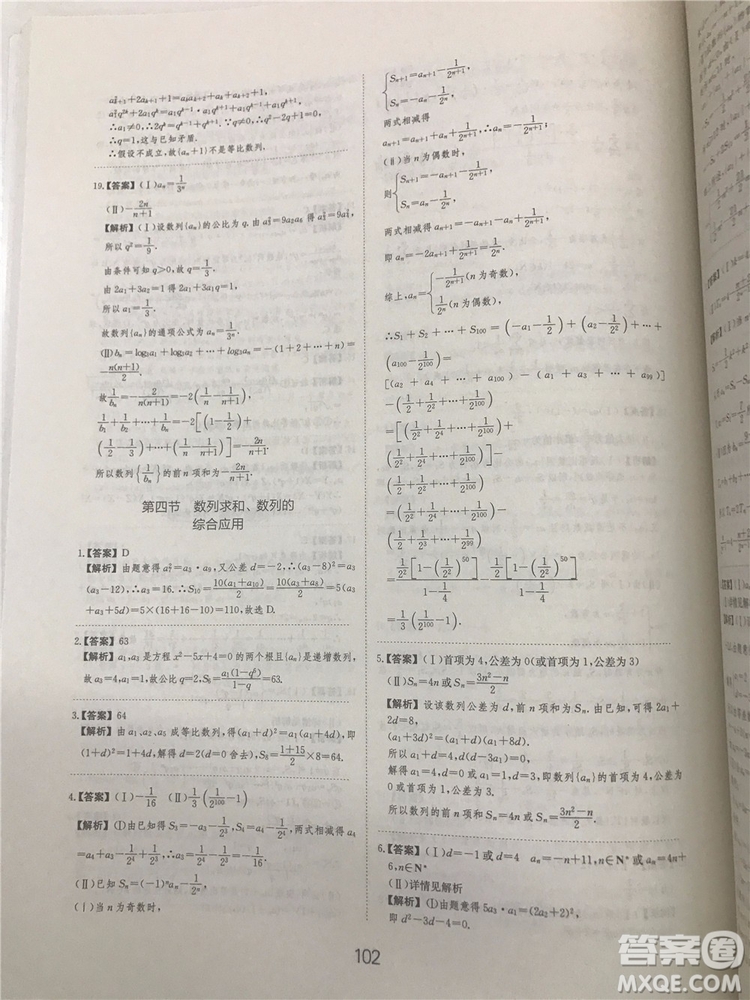 a²ₖ₊₂+2aₖ₊₂+1=aₖaₖ₊₂+aₖ+aₖ₊₂+1,
a₁²q²ᵏ+2a₁qᵏ=a₁qᵏ⁻¹·a₁qᵏ⁺¹+a₁qᵏ⁻¹+a₁qᵏ⁺¹,
∵a₁≠0,∴2qᵏ=qᵏ⁻¹+qᵏ⁺¹.∵q≠0,∴q²-2q+1=0,
∴q=1,这与已知矛盾.
∴假设不成立,故{aₙ+1}不是等比数列.
19.【答案】(Ⅰ)aₙ=1/3ⁿ
(Ⅱ)-2n/(n+1)
【解析】(Ⅰ)设数列{aₙ}的公比为q.由a₃²=9a₂a₆得a₃²=9a₄²,
所以q²=1/9.
由条件可知q>0,故q=1/3.
由2a₁+3a₂=1得2a₁+3a₁q=1,
所以a₁=1/3.
故数列{aₙ}的通项公式为aₙ=1/3ⁿ.
(Ⅱ)bₙ=log₃a₁+log₃a₂+…+log₃aₙ=-(1+2+…+n)=
-n(n+1)/2.
故1/bₙ=-2/(n(n+1))=-2(1/n-1/(n+1)),
1/b₁+1/b₂+…+1/bₙ=-2[(1-1/2)+
(1/2-1/3)+…+(1/n-1/(n+1))]=-2n/(n+1)
所以数列{1/bₙ}的前n项和为-2n/(n+1).
第四节 数列求和、数列的
综合应用
1.【答案】D
【解析】由题意得a₇²=a₃·a₉,又公差d=-2,∴(a₃-8)²=a₃
(a₃-12),∴a₃=16.∴S₁₀=10(a₁+a₁₀)/2=10(a₃+a₈)/2=5(a₃
+a₃+5d)=5×(16+16-10)=110,故选D.
2.【答案】63
【解析】a₁,a₃是方程x²-5x+4=0的两个根且{aₙ}是递增数列,
故a₁=1,a₃=4,q=2,S₆=a₁(1-q⁶)/(1-q)=63.
3.【答案】64
【解析】由a₁、a₂、a₅成等比数列,得(a₁+d)²=a₁(a₁+4d),即
(1+d)²=1+4d,解得d=2(d=0舍去),S₈=(1+15)/2×8=64.
4.【答案】(Ⅰ)-1/16 (Ⅱ)1/3(1/2¹⁰⁰-1)
【解析】(Ⅰ)由已知得S₃=-a₃-1/2³,S₄=a₄-1/2⁴,两式相减得a₄
=a₄+a₃-1/2⁴+1/2³,∴a₃=1/2⁴-1/2³=-1/16.
(Ⅱ)已知Sₙ=(-1)ⁿaₙ-1/2ⁿ,
(ⅰ)当n为奇数时,
{Sₙ₊₁=aₙ₊₁-1/2ⁿ⁺¹,
Sₙ=-aₙ-1/2ⁿ,
两式相减得
aₙ₊₁=aₙ₊₁+aₙ+1/2ⁿ⁺¹,∴aₙ=-1/2ⁿ⁺¹;
(ⅱ)当n为偶数时,
则{Sₙ₊₁=-aₙ₊₁-1/2ⁿ⁺¹,
Sₙ=aₙ-1/2ⁿ,
两式相减得aₙ₊₁=-aₙ₊₁-aₙ+1/2ⁿ⁺¹,
即aₙ=-2aₙ₊₁+1/2ⁿ⁺¹=1/2ⁿ.
综上,aₙ={-1/2ⁿ⁺¹(n为奇数),
1/2ⁿ(n为偶数),
∴S₁+S₂+…+S₁₀₀=(-a₁-1/2)+(a₂-1/2²)+…+
(a₁₀₀-1/2¹⁰⁰)=
[(a₂+a₄+…+a₁₀₀)-(a₁+a₃+…+a₉₉)]
-(1/2+1/2²+…+1/2¹⁰⁰)
=[(1/2²+1/2⁴+…+1/2¹⁰⁰)+
(1/2²+1/2⁴+…+1/2¹⁰⁰)]-
(1/2+1/2²+…+1/2¹⁰⁰)
=1/2²[1-(1/2²)⁵⁰]/(1-1/4)-1/2[1-(1/2²)⁵⁰]/(1-1/4)
=1/3(1/2¹⁰⁰-1).
5.【答案】(Ⅰ)首项为4,公差为0(或首项为1,公差为3)
(Ⅱ)Sₙ=4n或Sₙ=(3n²-n)/2
【解析】设该数列公差为d,前n项和为Sₙ.由已知,可得2a₁
+2d=8,
(a₁+3d)²=(a₁+d)(a₁+8d).
所以a₁+d=4,d(d-3a₁)=0,
解得a₁=4,d=0或a₁=1,d=3,即数列{aₙ}的首项为4,公
差为0或首项为1,公差为3.
所以数列的前n项和Sₙ=4n或Sₙ=(3n²-n)/2.
6.【答案】(Ⅰ)d=-1或d=4 aₙ=-n+11,n∈N*或aₙ=4n+
6,n∈N*
(Ⅱ)详情见解析
【解析】(Ⅰ)由题意得5a₃·a₁=(2a₂+2)²,
即d²-3d-4=0.
102
答案圈
MXQE.COM